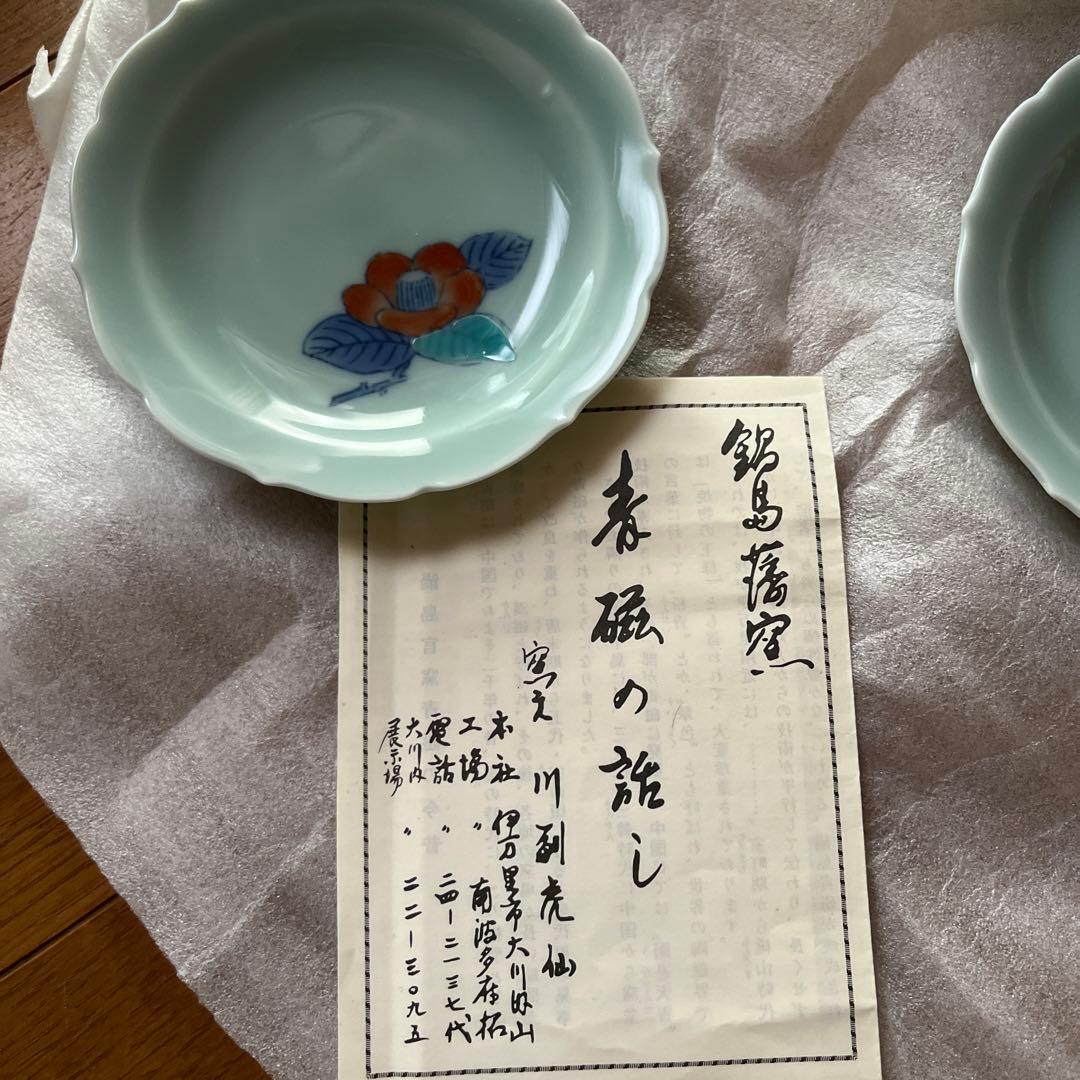 鍋島藩窯
青磁の話し
窯元 川副虎仙
本社 伊万里市大川内山
工場 〃 南波多府招
電話 〃 二四-二一三七代
大川内展示場 〃 二二-三〇九五